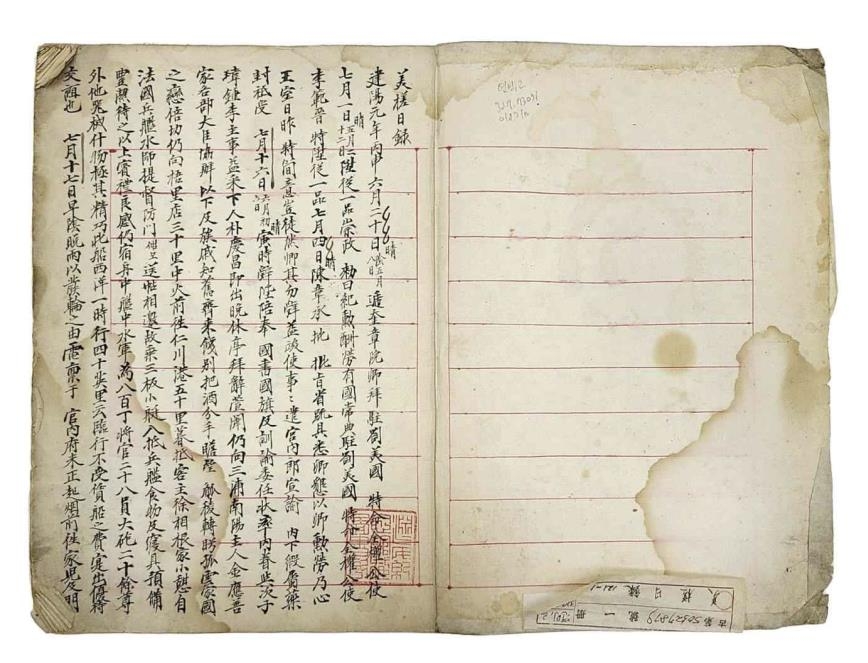 美槎日錄
建陽元年丙申六月二十日 晴 陰五月 遞奎章院卿拜駐箚美國 特命全權公使
七月一日 晴 陞從一品崇政 勅曰紀勳酬勞有國常典駐箚美國 特命全權公使
李範晉特陞從一品七月四日 晴 陳章承 批 批旨省疏具悉卿懇以卿勳勞乃心
王室日昨 特簡意豈徒然卿其勿辭益竣使事〻遣宮內郞宣諭 內下 藥
封祗受 七月十六日 晴 寅時辭陛陪奉 國書國旗及訓諭委任狀率內眷與次子
瑋鍾李主事益采下人朴慶昌卽出晩休亭拜辭 仍向三浦南陽主人金應善
家各部大臣協辦以下及族戚知舊齊來餞別把酒分手瞻望 觚稜轉眺孤雲家國
之戀倍切仍向梧里店三十里中火前往仁川港五十里暮抵客主徐相根家小憩自
法國兵艦水師提督防門 送帖相邀故乘三板小艇入抵兵艦食物及寢具預備
豐潔待之以上賓禮良感仍宿舟中艦中水軍爲八百丁將官二十八員大砲二十餘尊
外他兵械什物極其精巧此船西洋一時行四十英里云臨行不受賃船之費寔出優待
交誼也 七月十七日早陰晩雨以發輪之由電稟于 宮內府未正起烟前往家兒及明
古第 號 一 冊
美槎日錄